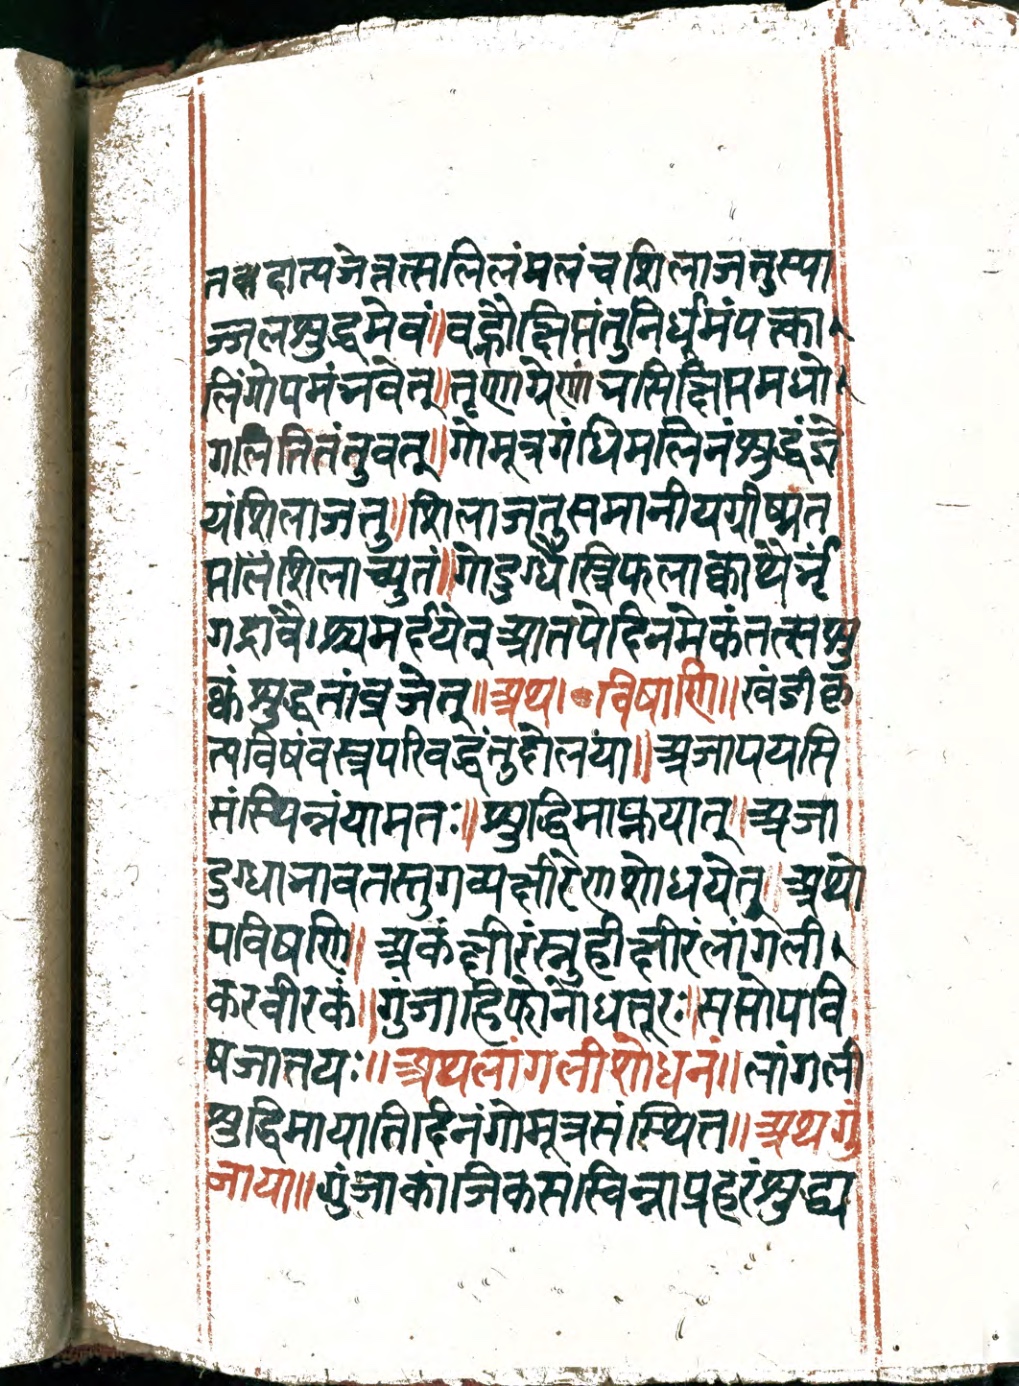 तक्षदात्यजेत्तत्सलिलंमलंचशिलाजतुस्या
ज्जलशुद्धमेवं॥वह्नौक्षिप्तंतुनिर्धूमंपत्का
लिंगोपमंभवेत्॥तृणाग्रेणंचसिक्षिप्तमधो
गलितितंतुवत्॥गोमूत्रगंधिमलिनंशुद्धंज्ञे
यंशिलाजतु॥शिलाजतुसमानीयग्रीष्मत
प्तालंशिलाच्युतं॥गोदुग्धैस्त्रिफलाक्वाथैर्नृं
गद्रावै।श्चमर्दयेत्आतपेदिनमेकंतत्सशु
ष्कंशुद्धतांव्रजेत्॥अथ।विषाणि॥खंडीकृ
त्यविषंवस्त्रपरिवद्धंतुदोलया॥अजापयसि
संस्विन्नंयामतः॥शुद्धिमाप्नुयात्॥अजा
दुग्धानावतस्तुगव्यक्षीरेणशोधयेत्॥अथो
पविषाणि॥अर्कक्षीरंस्नुहीक्षीरंलांगली
करवीरकं॥गुंजाहिफेनोधत्तूरः॥सप्तोपवि
षजातयः॥अथलांगलीशोधनं॥लांगली
शुद्धिमायातिदिनंगोमूत्रसंस्थित॥अथगुं
जाया॥गुंजाकांजिकसंस्विन्नाप्रहरंशुद्ध्य